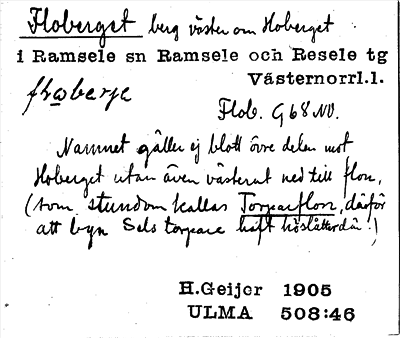 Floberget berg väster om Hoberget
i Ramsele sn Ramsele och Resele tg
Västernorrl.l.
Flob. G68 NV.
Namnet gäller ej blott övre delen mot
Hoberget utan även västerut ned till flon,
(som stundom kallas Torparflon, därför
att byn Sels torpare haft höslåtter där.)
H.Geijer 1905
ULMA 508:46